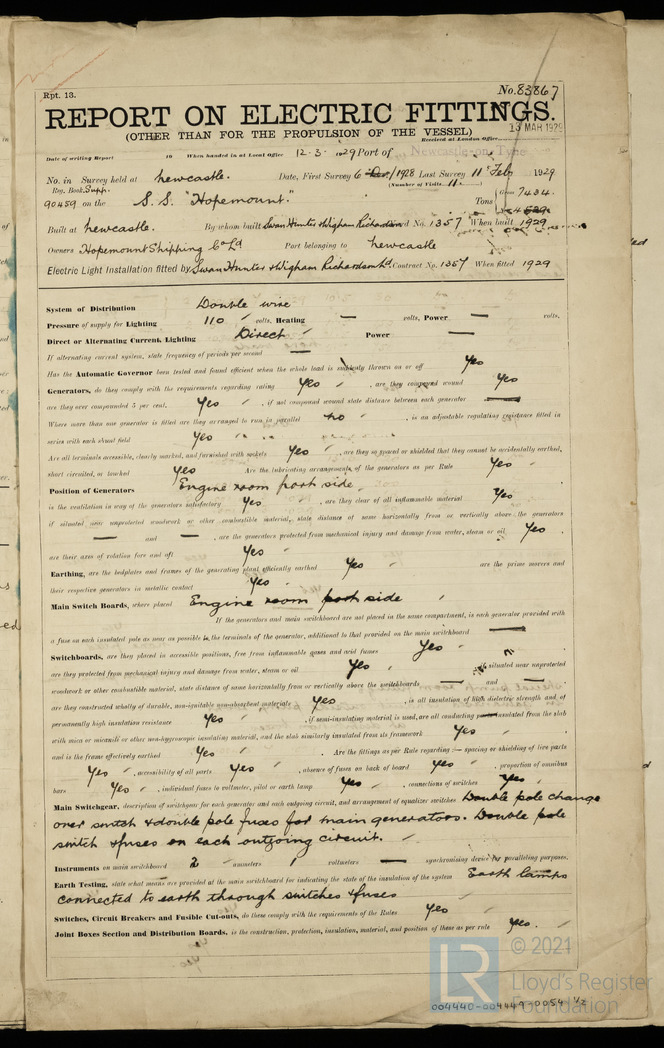 Rpt. 13.
No. 83867
REPORT ON ELECTRIC FITTINGS.
(OTHER THAN FOR THE PROPULSION OF THE VESSEL)
Received at London Office
13 MAR 1929
Date of writing Report 19 When handed in at Local Office 12-3-1929 Port of Newcastle-on-Tyne
No. in Survey held at Newcastle. Date, First Survey 6 Dec/1928 Last Survey 11th Feb 1929
Reg. Book. Supp. (Number of Visits 11)
90459 on the S.S. "Hopemount." Tons Gross 7434
Built at Newcastle. By whom built Swan Hunter & Wigham Richardson Yard No. 1357 When built 1929
Owners Hopemount Shipping Co Ld Port belonging to Newcastle
Electric Light Installation fitted by Swan Hunter & Wigham Richardson Ld. Contract No. 1357 When fitted 1929
System of Distribution Double wire
Pressure of supply for Lighting 110 volts, Heating — volts, Power — volts.
Direct or Alternating Current, Lighting Direct Power —
If alternating current system, state frequency of periods per second —
Has the Automatic Governor been tested and found efficient when the whole load is suddenly thrown on or off Yes
Generators, do they comply with the requirements regarding rating Yes , are they compound wound Yes
are they over compounded 5 per cent. Yes , if not compound wound state distance between each generator —
Where more than one generator is fitted are they arranged to run in parallel no , is an adjustable regulating resistance fitted in
series with each shunt field Yes
Are all terminals accessible, clearly marked, and furnished with sockets Yes , are they so spaced or shielded that they cannot be accidentally earthed,
short circuited, or touched Yes Are the lubricating arrangements of the generators as per Rule Yes
Position of Generators Engine room port side
is the ventilation in way of the generators satisfactory Yes , are they clear of all inflammable material Yes
if situated near unprotected woodwork or other combustible material, state distance of same horizontally from or vertically above the generators
— and — , are the generators protected from mechanical injury and damage from water, steam or oil Yes .
are their axes of rotation fore and aft Yes
Earthing, are the bedplates and frames of the generating plant efficiently earthed Yes are the prime movers and
their respective generators in metallic contact Yes
Main Switch Boards, where placed Engine room port side
If the generators and main switchboard are not placed in the same compartment, is each generator provided with
a fuse on each insulated pole as near as possible to the terminals of the generator, additional to that provided on the main switchboard —
Switchboards, are they placed in accessible positions, free from inflammable gases and acid fumes Yes
are they protected from mechanical injury and damage from water, steam or oil Yes , if situated near unprotected
woodwork or other combustible material, state distance of same horizontally from or vertically above the switchboards — and —
are they constructed wholly of durable, non-ignitable non-absorbent materials Yes , is all insulation of high dielectric strength and of
permanently high insulation resistance Yes , if semi-insulating material is used, are all conducting parts insulated from the slab
with mica or micanite or other non-hygroscopic insulating material, and the slab similarly insulated from its framework Yes
and is the frame effectively earthed Yes . Are the fittings as per Rule regarding:— spacing or shielding of live parts
Yes , accessibility of all parts Yes , absence of fuses on back of board Yes , proportion of omnibus
bars Yes , individual fuses to voltmeter, pilot or earth lamp Yes , connections of switches Yes
Main Switchgear, description of switchgear for each generator and each outgoing circuit, and arrangement of equalizer switches Double pole change
over switch & double pole fuses for main generators. Double pole
switch & fuses on each outgoing circuit.
Instruments on main switchboard 2 ammeters 1 voltmeters — synchronising device for paralleling purposes.
Earth Testing, state what means are provided at the main switchboard for indicating the state of the insulation of the system Earth lamps
connected to earth through switches & fuses
Switches, Circuit Breakers and Fusible Cut-outs, do these comply with the requirements of the Rules Yes
Joint Boxes Section and Distribution Boards, is the construction, protection, insulation, material, and position of these as per rule Yes.
LR © 2021
Lloyd's Register
Foundation
004440-004449-0054 1/2